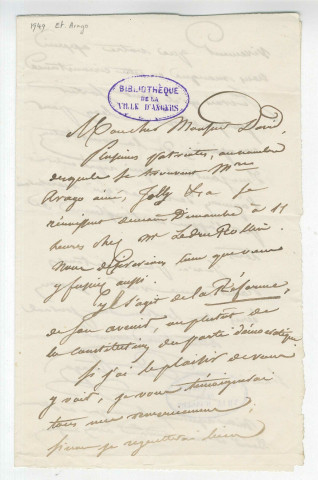 1949 Et. Arago
BIBLIOTHÈQUE
DE LA
VILLE D'ANGERS
Mon cher Monsieur David,
Plusieurs patriotes, au nombre
desquels se trouvent Mrs
Arago ainé, Joly &a se
réunissent demain Dimanche à 11
heures chez Mr Ledru Rollin.
Nous désirerions tous que vous
y fussiez aussi.
Il s'agit de la Réforme,
de son avenir, ou plutôt de
la constitution du parti démocratique.
Si j'ai le plaisir de vous
y voir, je vous témoignerai
tous mes remerciemens,
sinon je regretterai bien